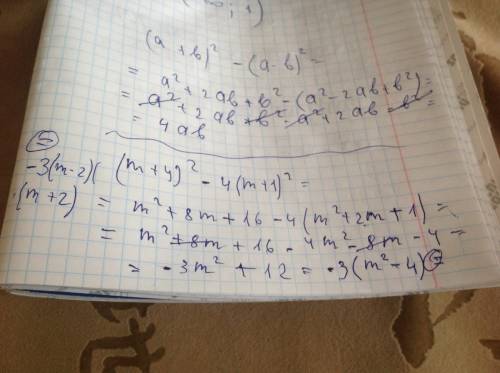 ; 1)
(a + b)² - (a - b)² =
= a² + 2ab + b² - (a² - 2ab + b²) =
= a² + 2ab + b² - a² + 2ab - b² =
= 4ab
(m + 4)² - 4(m + 1)² =
= m² + 8m + 16 - 4(m² + 2m + 1) =
= m² + 8m + 16 - 4m² - 8m - 4 =
= -3m² + 12 = -3(m² - 4) =
-3(m - 2)(
·(m + 2)